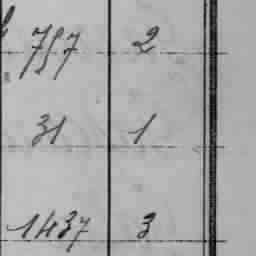 757 2
31 1
1437 3